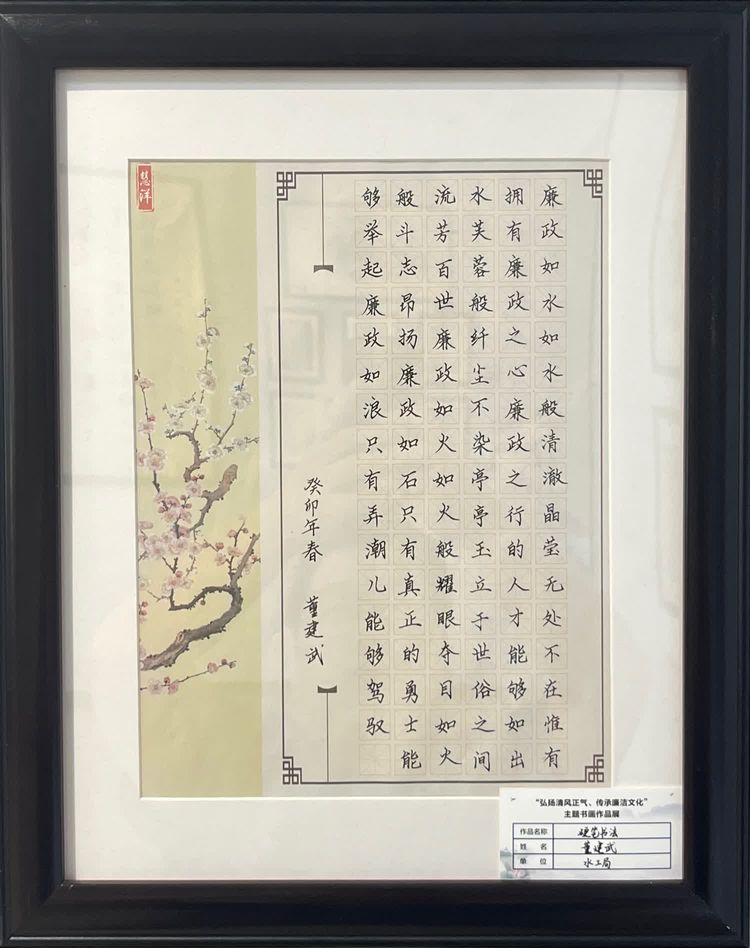 廉政如水如水般清澈晶莹无处不在惟有
拥有廉政之心廉政之行的人才能够如出
水芙蓉般纤尘不染亭亭玉立于世俗之间
流芳百世廉政如火如火般耀眼夺目如火
般斗志昂扬廉政如石只有真正的勇士能
够举起廉政如浪只有弄潮儿能够驾驭
癸卯年春 董建武
慧洋
“弘扬清风正气、传承廉洁文化”
主题书画作品展
作品名称 硬笔书法
姓名 董建武
单位 水工局